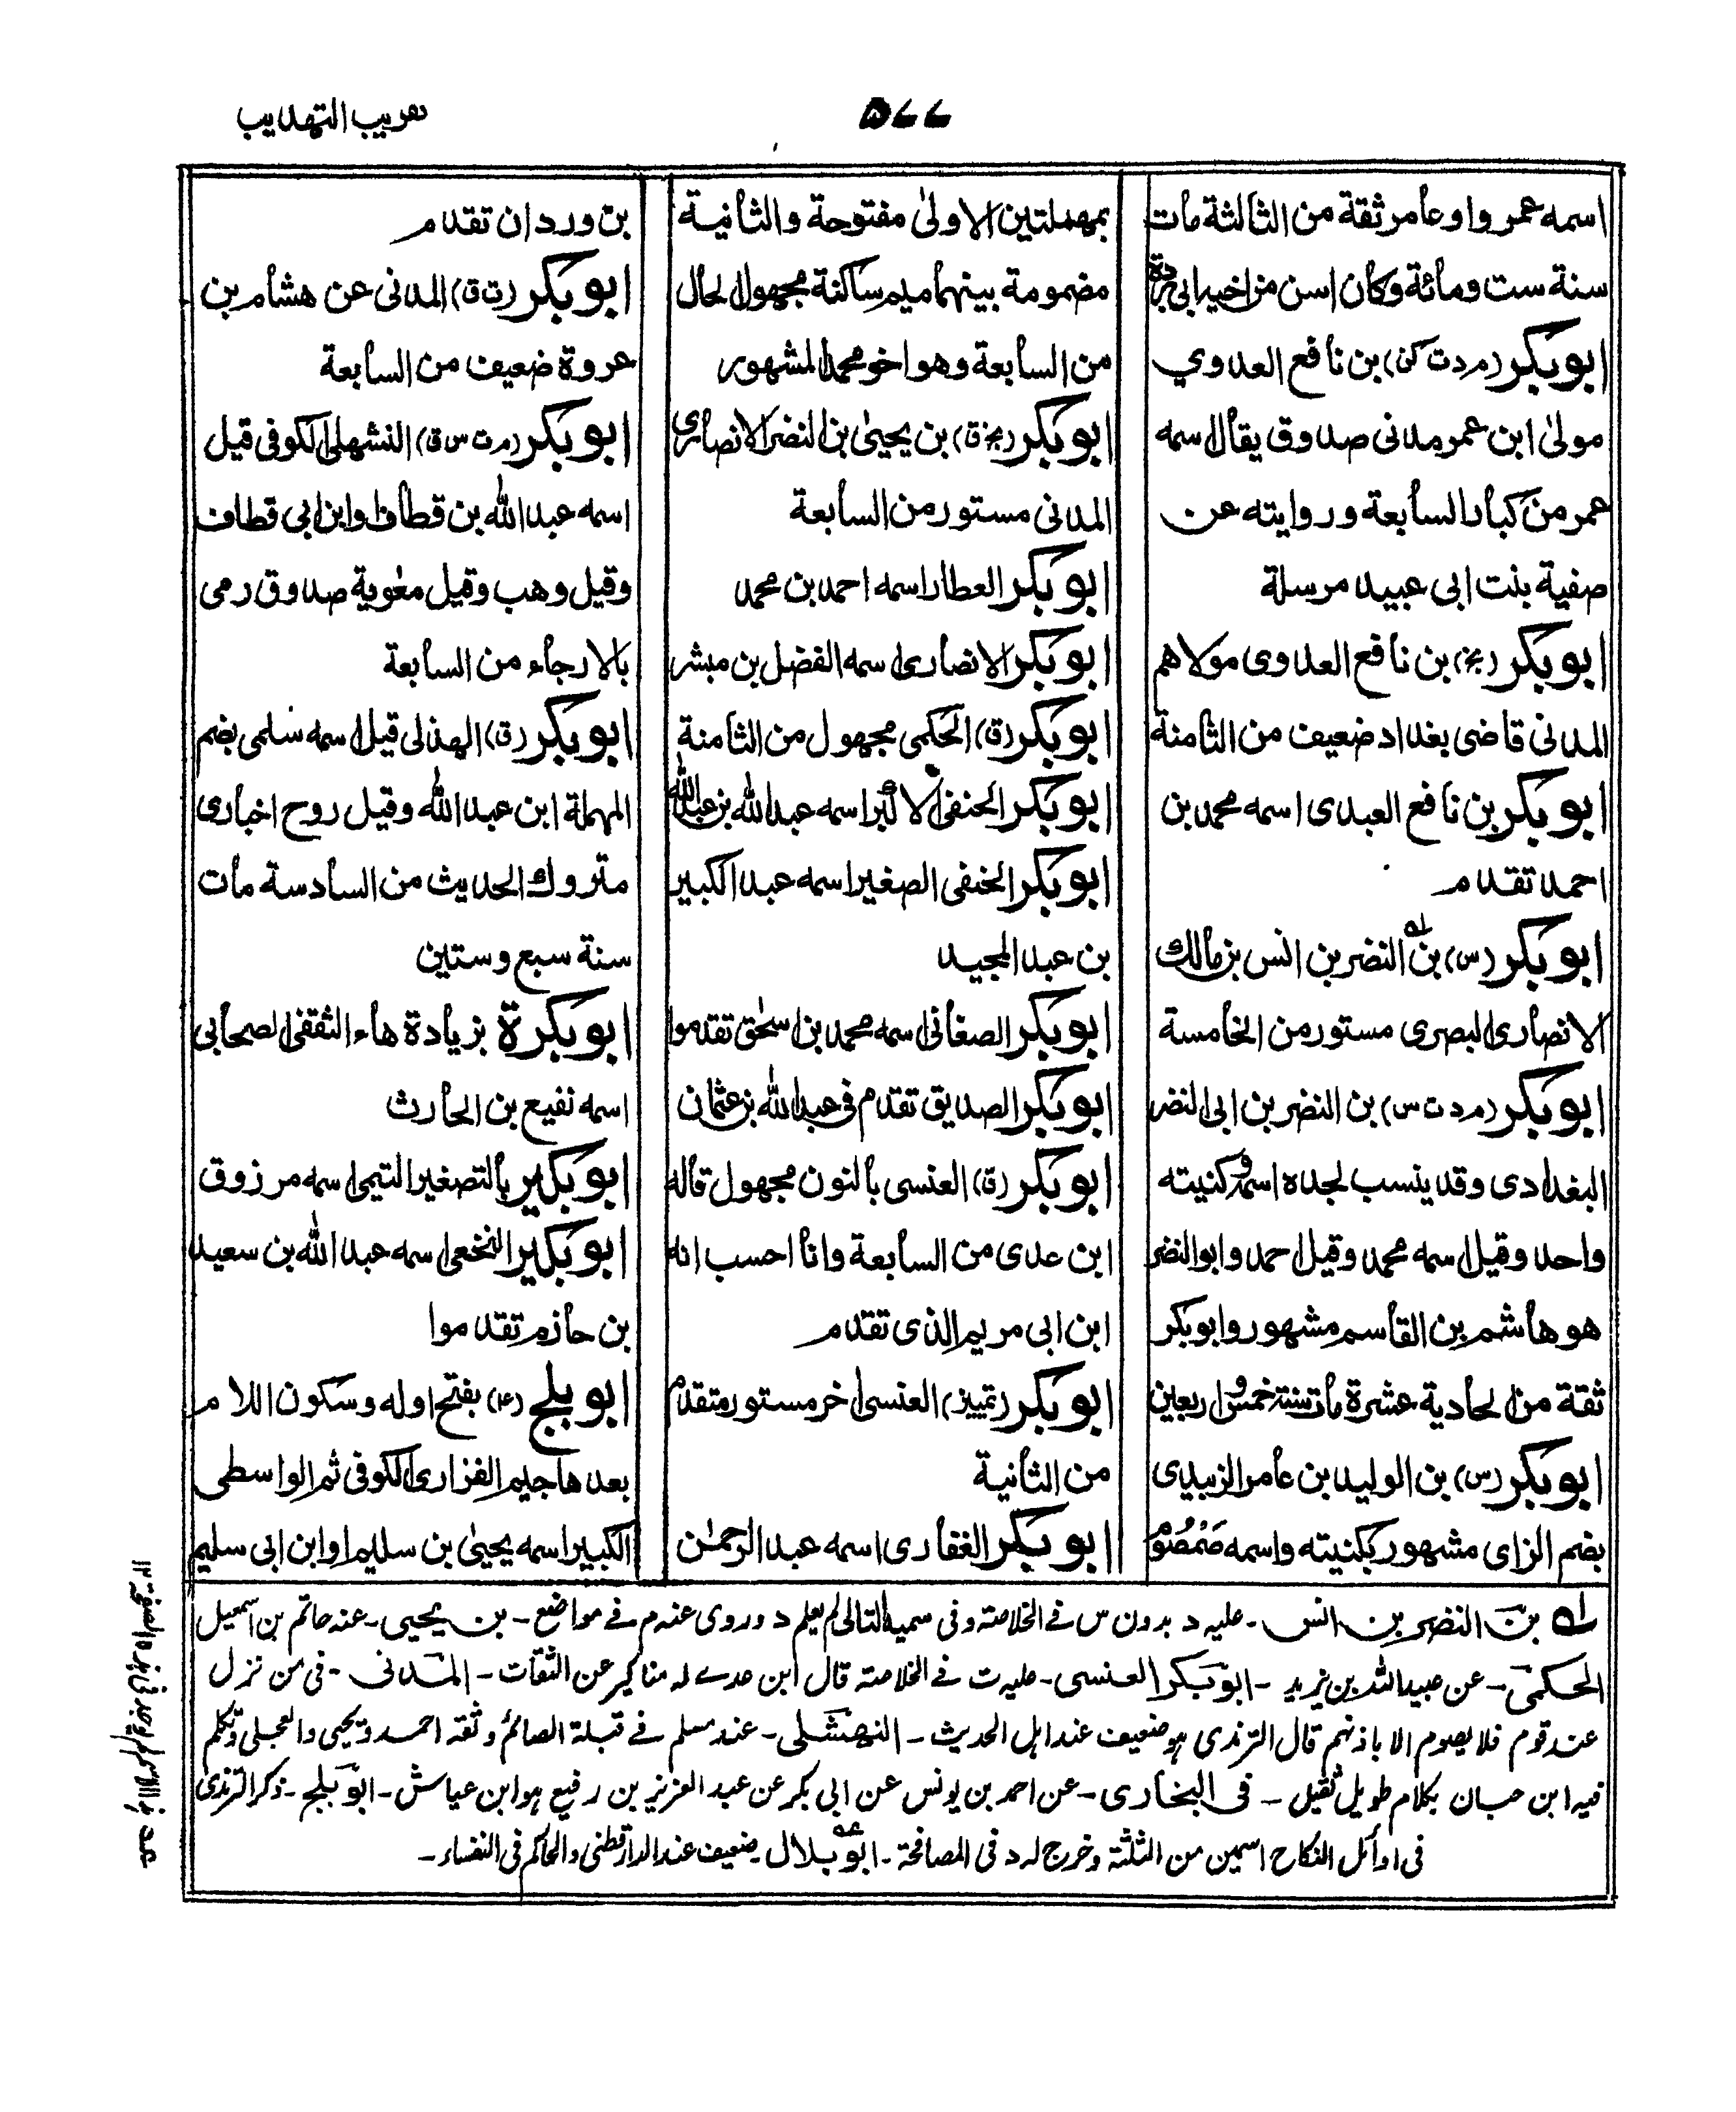 تقريب التهذيب
۵۷۷
اسمه عمرو او عامر ثقة من الثالثة مات
سنة ست ومائة وكان اسن من اخيه ابي بردة
ابو بكر (م د ت كن) بن نافع العدوي
مولىٰ ابن عمر مدنى صدوق يقال اسمه
عمر من كبار السابعة وروايته عن
صفية بنت ابى عبيد مرسلة
ابو بكر (بخ) بن نافع العدوى مولاهم
المدنى قاضى بغداد ضعيف من الثامنة
ابو بكر بن نافع العبدى اسمه محمد بن
احمد تقدم
ابو بكر (س) بن النضر بن انس بن مالك
الانصارى البصرى مستور من الخامسة
ابو بكر (م د ت س) بن النضر بن ابى النضر
البغدادى وقد ينسب لجده اسمه وكنيته
واحد وقيل اسمه محمد وقيل احمد وابو النضر
هو هاشم بن القاسم مشهور وابو بكر
ثقة من الحادية عشرة مات سنة خمس واربعين
ابو بكر (س) بن الوليد بن عامر الزبيدى
بضم الزاى مشهور بكنيته واسمه صَمْصُوْم
بمهملتين الاولىٰ مفتوحة والثانية
مضمومة بينهما ميم ساكنة مجهول الحال
من السابعة وهو اخو محمد المشهور
ابو بكر (بخ ق) بن يحيىٰ بن النضر الانصارى
المدنى مستور من السابعة
ابو بكر العطار اسمه احمد بن محمد
ابو بكر الانصارى اسمه الفضل بن مبشر
ابو بكر (ق) الحكمى مجهول من الثامنة
ابو بكر الحنفى الاكبر اسمه عبد الله بن عبد الله
ابو بكر الحنفى الصغير اسمه عبد الكبير
بن عبد المجيد
ابو بكر الصغانى اسمه محمد بن اسحٰق تقدموا
ابو بكر الصديق تقدم فى عبد الله بن عثمان
ابو بكر (ق) العنسى بالنون مجهول قاله
ابن عدى من السابعة وانا احسب انه
ابن ابى مريم الذى تقدم
ابو بكر (تمييز) العنسى اخر مستور متقدم
من الثانية
ابو بكر الغفارى اسمه عبد الرحمٰن
بن وردان تقدم
ابو بكر (ت ق) المدنى عن هشام بن
عروة ضعيف من السابعة
ابو بكر (م ت س ق) النهشلى الكوفى قيل
اسمه عبد الله بن قطاف او ابن ابى قطاف
وقيل وهب وقيل معٰوية صدوق رمى
بالارجاء من السابعة
ابو بكر (ق) الهذلى قيل اسمه سُلمى بضم
المهملة ابن عبد الله وقيل روح اخبارى
متروك الحديث من السادسة مات
سنة سبع وستين
ابو بكرة بزيادة هاء الثقفى الصحابى
اسمه نفيع بن الحارث
ابو بكير بالتصغير التيمى اسمه مرزوق
ابو بكير النخعى اسمه عبد الله بن سعيد
بن حازم تقدموا
ابو بلج (۴) بفتح اوله وسكون اللام
بعدها جيم الفزارى الكوفى ثم الواسطى
الكبير اسمه يحيىٰ بن سليم او ابن ابى سليم
له بن النضر بن انس - عليه د بدون س فے الخلاصة وفى سمية التالى لم يعلم د وروى عنه م فے مواضع - بن يحيى - عنه حاتم بن اسمعيل
الحكمى - عن عبيد الله بن يزيد - ابو بكر العنسى - عليه ت فے الخلاصة قال ابن عدے له مناكير عن الثقات - المدنى - فى من نزل
عند قوم فلا يصوم الا باذنهم قال الترمذى هو ضعيف عند اهل الحديث - النهشلى - عند مسلم فے قبلة الصائم وثقه احمد ويحيى والعجلى وتكلم
فيه ابن حبان بكلام طويل ثقيل - فى البخارى - عن احمد بن يونس عن ابى بكر عن عبد العزيز بن رفيع هو ابن عياش - ابو بلج - ذكر الترمذى
فى اوائل النكاح اسمين من الثلثة وخرج له د فى المصافحة - ابو بلال ضعيف عند الدارقطنى والحاكم فى النفساء -